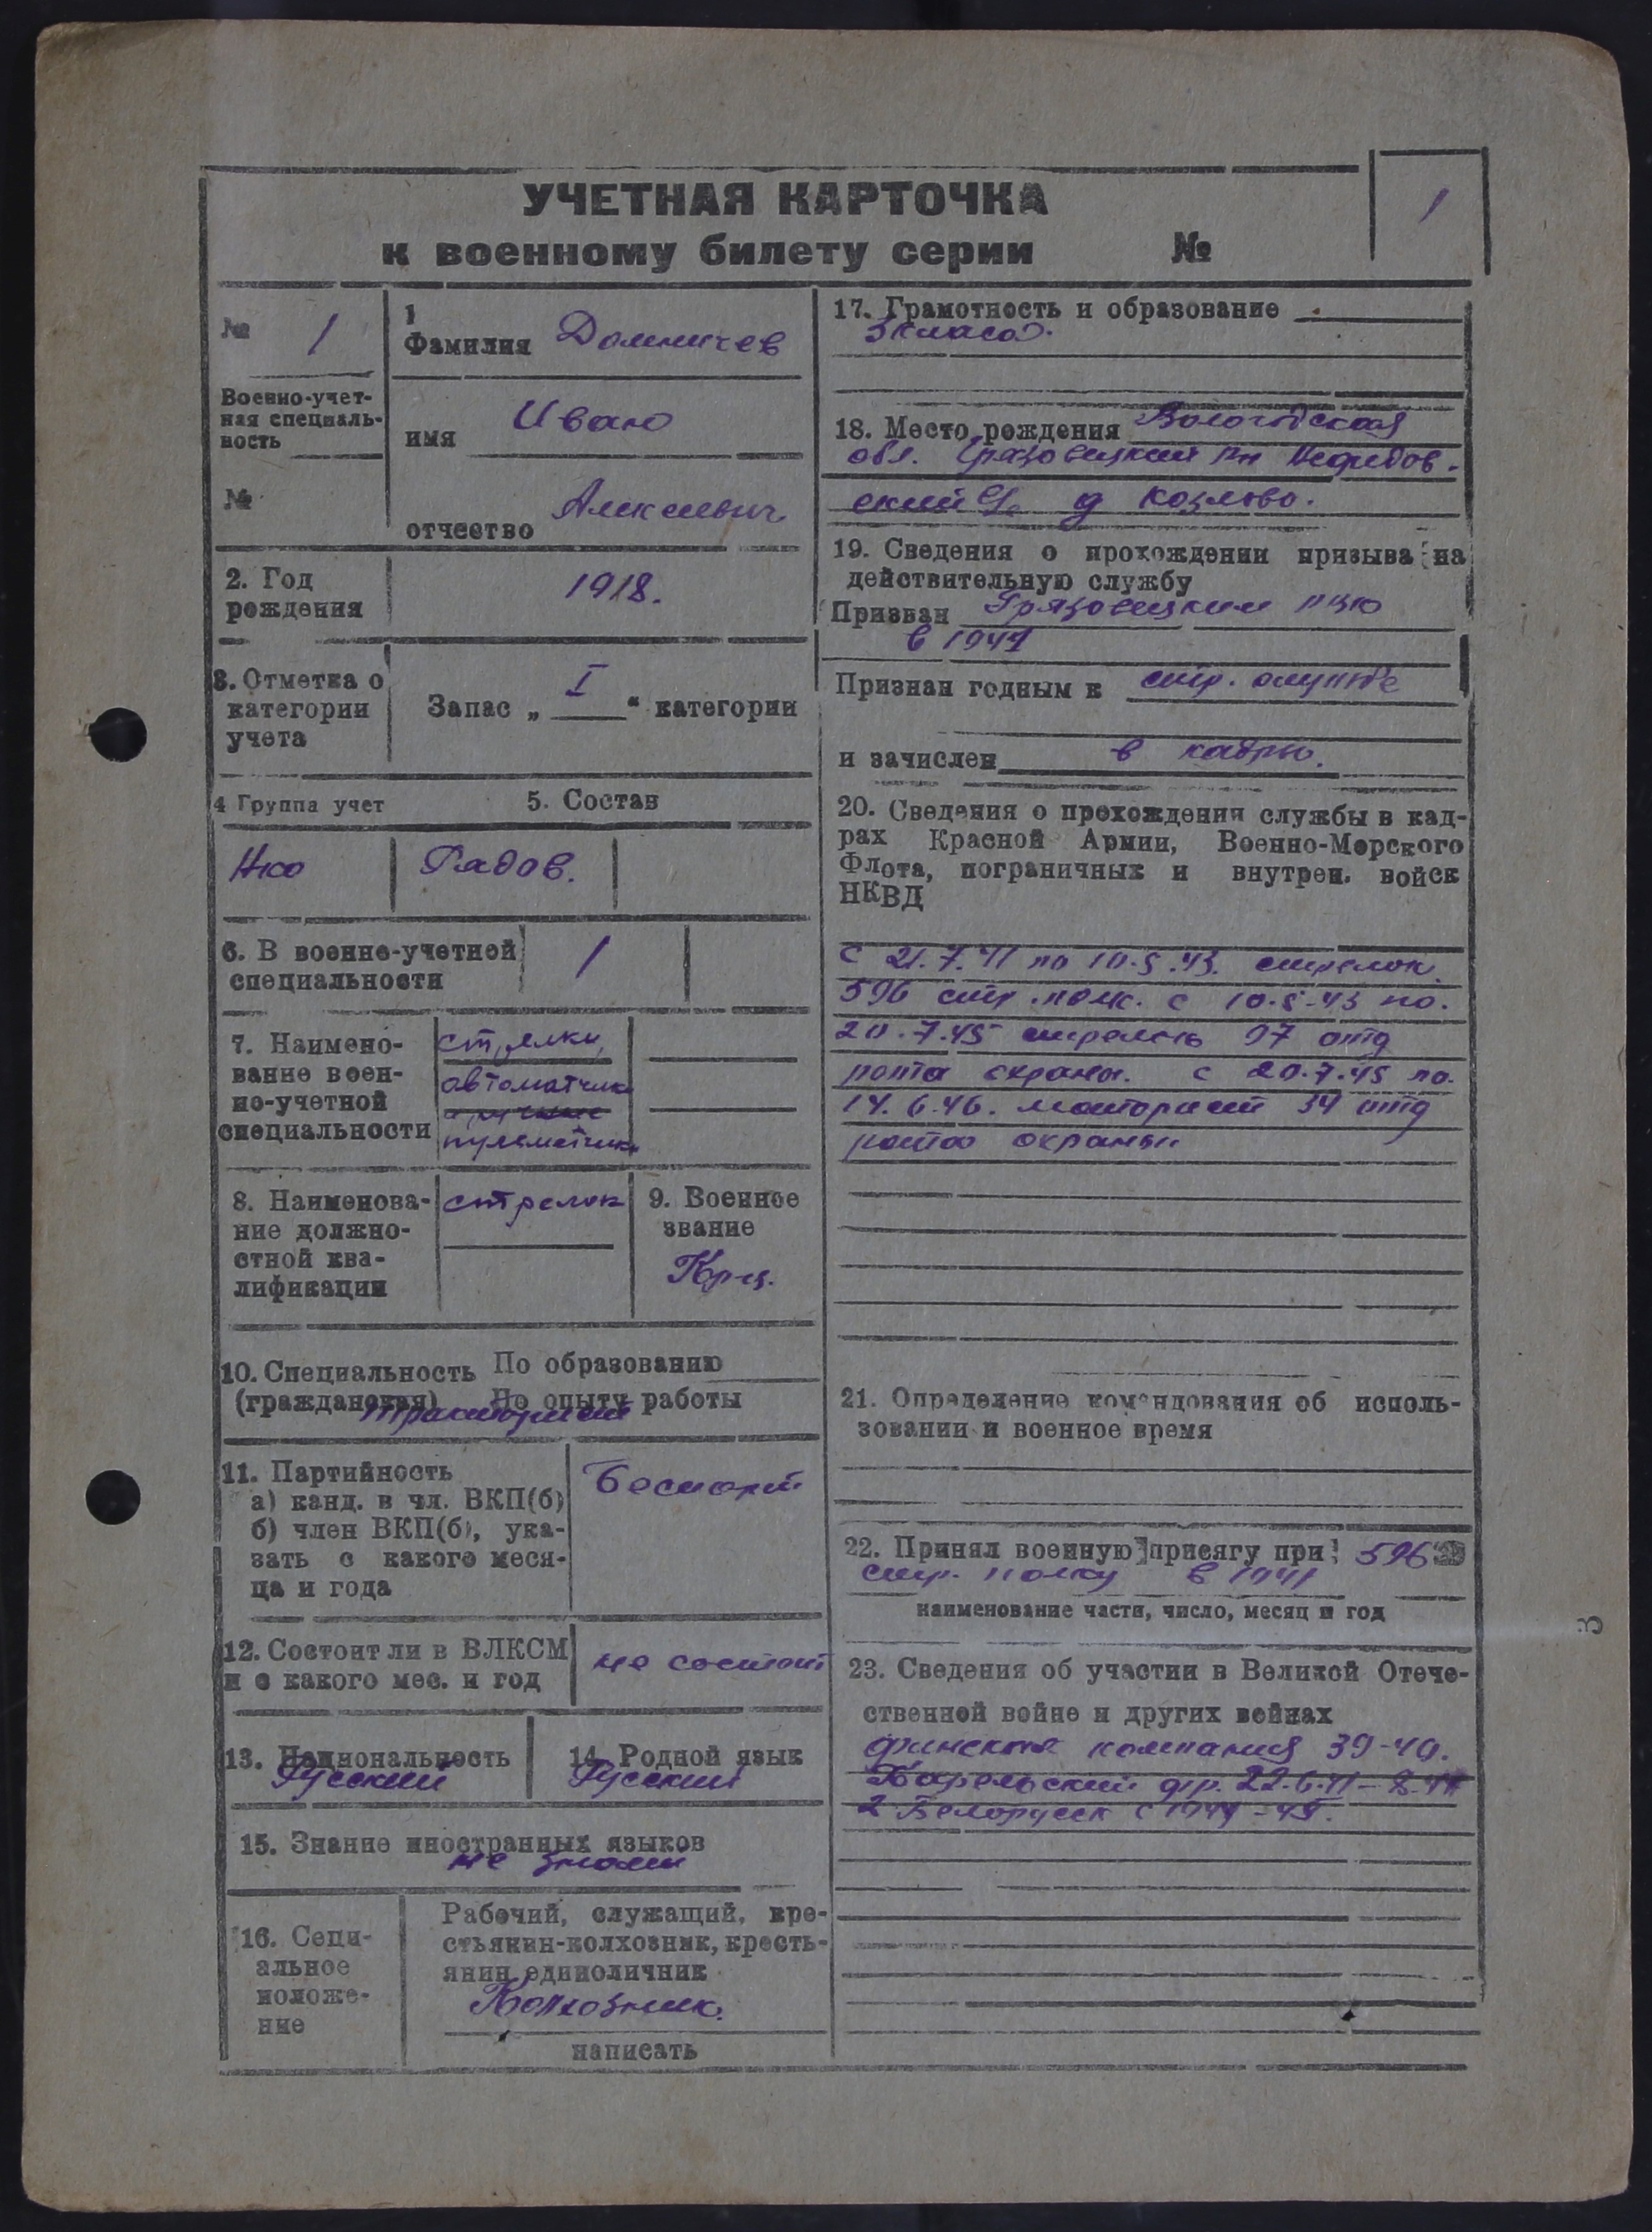 УЧЕТНАЯ КАРТОЧКА
к военному билету серии №
1
№ 1
Военно-учет-
ная специаль-
ность
№
1
Фамилия Домничев
имя Иван
отчество Алексеевич
2. Год
рождения
1918.
3. Отметка о
категории
учета
Запас „ I “ категории
4 Группа учет
5. Состав
Рядов.
6. В военно-учетной
специальности
1
7. Наимено-
вание воен-
но-учетной
специальности
стрелки,
автоматчики
пулеметчики
8. Наименова-
ние должно-
стной ква-
лификации
стрелок
9. Военное
звание
Кр-ц.
10. Специальность По образованию
(гражданская) По опыту работы
тракторист
11. Партийность
а) канд. в чл. ВКП(б)
б) член ВКП(б), ука-
зать с какого меся-
ца и года
Беспарт
12. Состоит ли в ВЛКСМ
и с какого мес. и год
не состоит
13. Национальность
Русский
14. Родной язык
Русский
15. Знание иностранных языков
не знает
16. Соци-
альное
положе-
ние
Рабочий, служащий, кре-
стьянин-колхозник, кресть-
янин единоличник
Колхозник.
написать
17. Грамотность и образование
3 класса.
18. Место рождения Вологодская
обл. Грязовецкий рн Нефедов-
ский с/с д Козлово.
19. Сведения о прохождении призыва на
действительную службу
Призван Грязовецким
в 1941
Признан годным к стр. службе
и зачислен в кадры.
20. Сведения о прохождении службы в кад-
рах Красной Армии, Военно-Морского
Флота, пограничных и внутрен. войск
НКВД
с 21.7.41 по 10.5.43. стрелок
596 стр. полк. с 10.5.43 по.
20.7.45 стрелок 97 отд
рота охраны. с 20.7.45 по.
14.6.46. 34 отд
рота охраны
21. Определение командования об исполь-
зовании и военное время
22. Принял военную присягу при 596
стр. полку в 1941
наименование части, число, месяц и год
23. Сведения об участии в Великой Отече-
ственной войне и других войнах
финская компания 39-40.
Карельский фр. 22.6.41-
2 Белорусск с 1944-45.